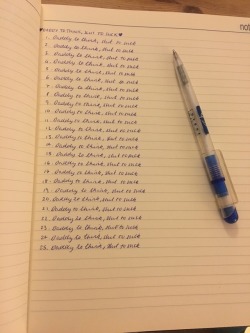 ♥DADDY TO THINK, SLUT TO SUCK♥
1. Daddy to think, slut to suck
2. Daddy to think, slut to suck
3. Daddy to think, slut to suck
4. Daddy to think, slut to suck
5. Daddy to think, slut to suck
6. Daddy to think, slut to suck
7. Daddy to think, slut to suck
8. Daddy to think, slut to suck
9. Daddy to think, slut to suck
10. Daddy to think, slut to suck
11. Daddy to think, slut to suck
12. Daddy to think, slut to suck
13. Daddy to think, slut to suck
14. Daddy to think, slut to suck
15. Daddy to think, slut to suck
16. Daddy to think, slut to suck
17. Daddy to think, slut to suck
18. Daddy to think, slut to suck
19. Daddy to think, slut to suck
20. Daddy to think, slut to suck
21. Daddy to think, slut to suck
22. Daddy to think, slut to suck
23. Daddy to think, slut to suck
24. Daddy to think, slut to suck
25. Daddy to think, slut to suck